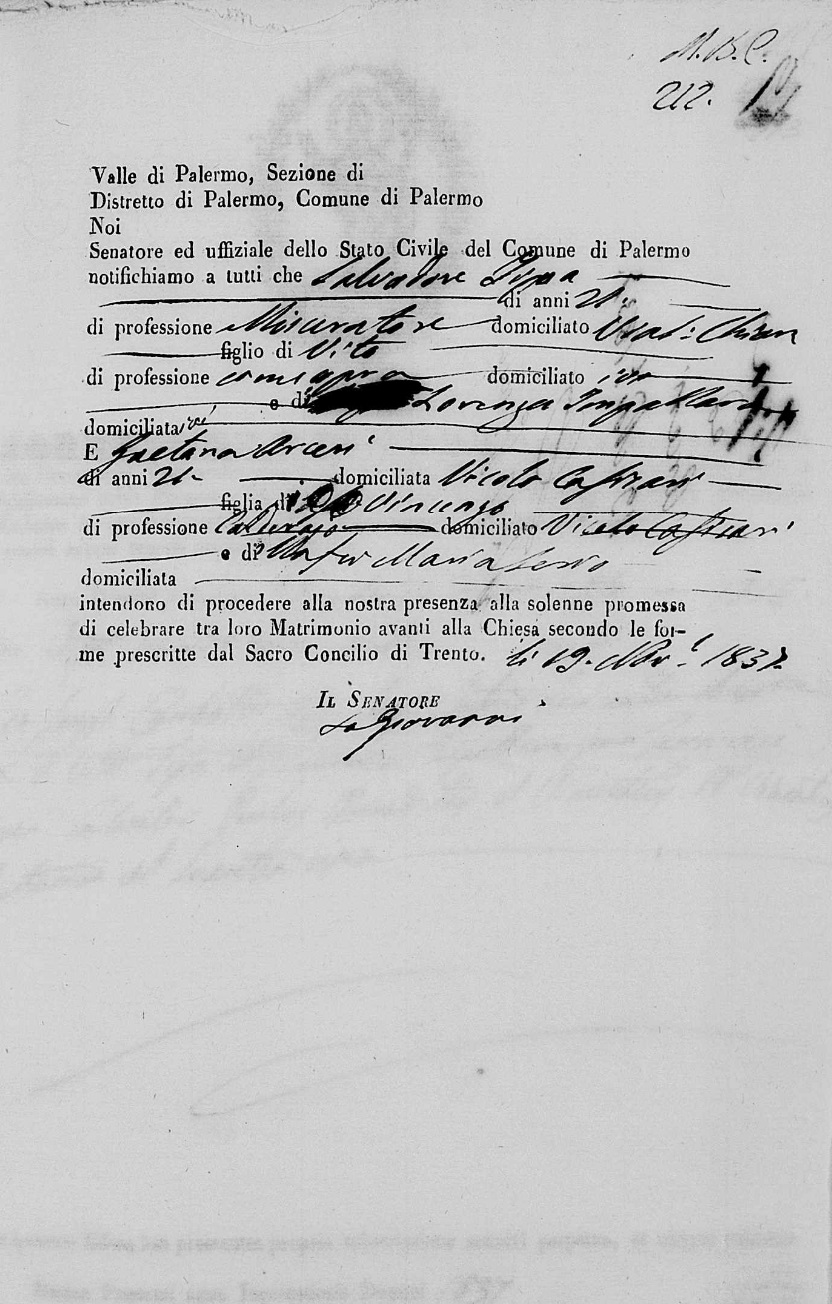 M. B. C.
212.
Valle di Palermo, Sezione di
Distretto di Palermo, Comune di Palermo
Noi
Senatore ed uffiziale dello Stato Civile del Comune di Palermo
notifichiamo a tutti che Salvadore
di anni 21.
di professione Misuratore domiciliato
figlio di Vito
di professione come sopra domiciliato ivi
e di Lorenza
domiciliata ivi
E Gaetana Arceri
di anni 21- domiciliata Vicolo
figlia di Vincenzo
di professione domiciliato Vicolo
e di Maria
domiciliata
intendono di procedere alla nostra presenza alla solenne promessa
di celebrare tra loro Matrimonio avanti alla Chiesa secondo le for-
me prescritte dal Sacro Concilio di Trento. li 19. Nov.e 1837.
IL SENATORE